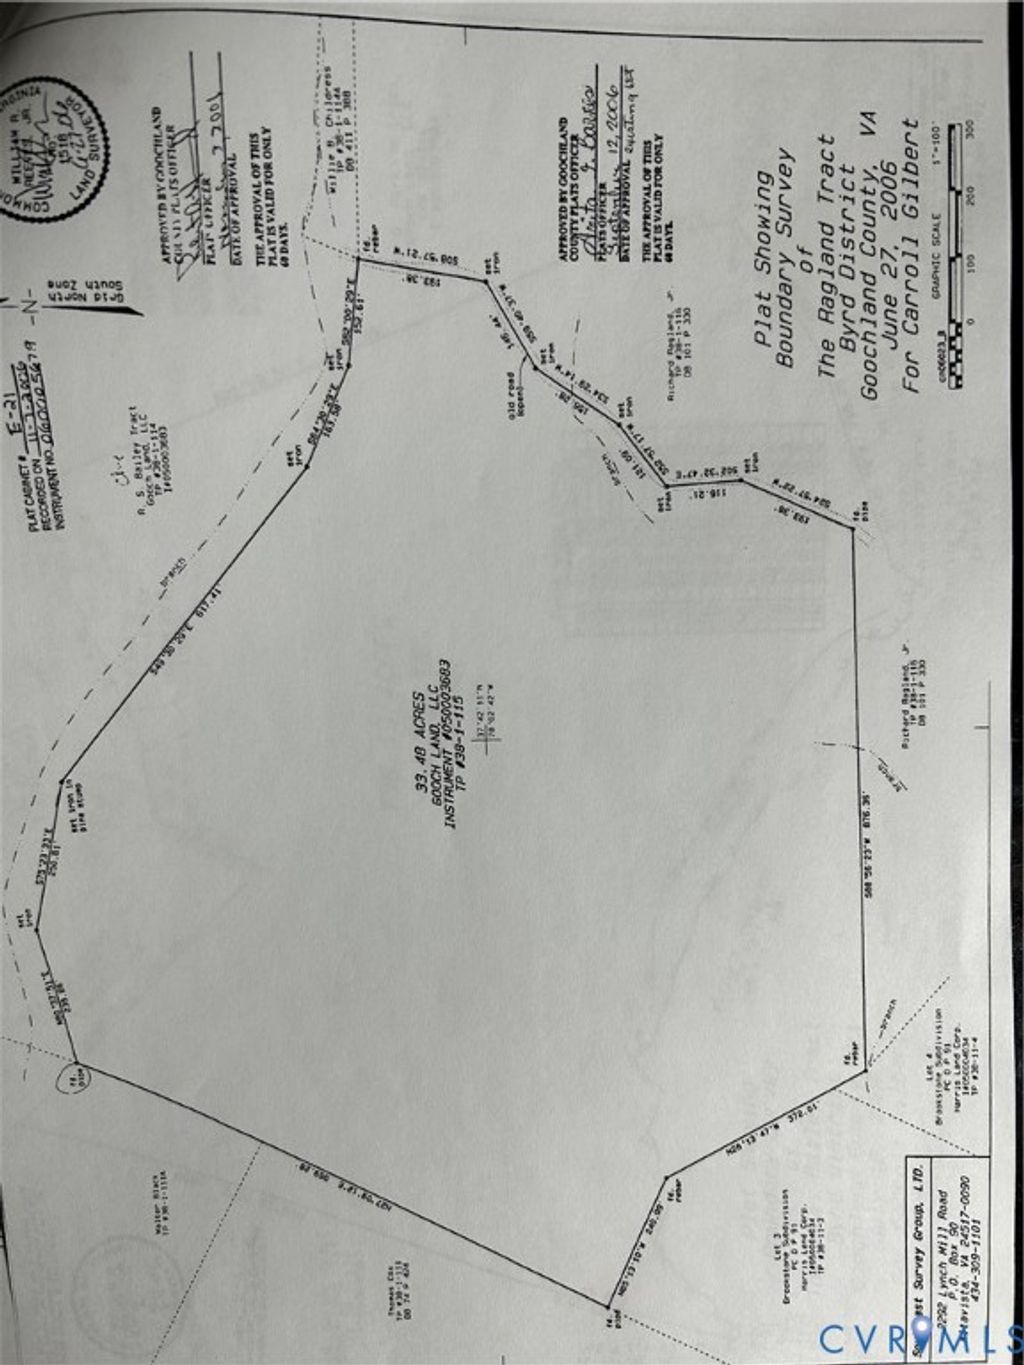 PLAT CABINET# E-21
RECORDED ON 11-7-2006
INSTRUMENT NO. 0600105679
LAND SURVEYOR
WILLIAM R.
Grid North
South Zone
-N-
APPROVED BY GOOCHLAND
COUNTY PLATS OFFICER
PLAT OFFICER
DATE OF APPROVAL
THE APPROVAL OF THIS
PLAT IS VALID FOR ONLY
60 DAYS.
Willie B. Childress
TP #38-1-114A
DB 411 P 388
R. S. Bailey Tract
Gooch Land, LLC
TP #38-1-114
I#050003683
APPROVED BY GOOCHLAND
COUNTY PLATS OFFICER
PLATS OFFICER
September 12, 2006
DATE OF APPROVAL
THE APPROVAL OF THIS
PLAT IS VALID FOR ONLY
60 DAYS.
Plat Showing
Boundary Survey
of
The Ragland Tract
Byrd District
Goochland County, VA
June 27, 2006
For Carroll Gilbert
0 100 200 300
GRAPHIC SCALE 1"=100'
Richard Ragland, Jr.
TP #38-1-116
DB 101 P 330
fd.
rebar
S82°00'29"E
152.61'
set
iron
163.58'
set
iron
branch
S49°30'29"E 617.41'
set iron in
pine stump
S75°23'23"E
250.81'
set
iron
fd.
pipe
S08°57'21"W
193.38'
set
iron
S59°40'37"W
146.44'
set
iron
old road
(open)
S34°29'14"W
set
iron
branch
S52°57'17"W
121.09'
set
iron
S02°32'47"E
116.21'
set
iron
S24°57'22"W
193.36'
fd.
pipe
33.48 ACRES
GOOCH LAND, LLC
INSTRUMENT #050003683
TP #38-1-115
37°42'51"N
78°02'42"W
Richard Ragland, Jr.
TP #38-1-116
DB 101 P 330
branch
S88°56'23"W 876.36'
fd.
rebar
branch
N26°13'47"W 372.01'
fd.
rebar
N65°13'10"W 240.00'
fd.
pipe
N27°09'12"E 969.28'
Walter Black
TP #38-1-111A
Thomas Cox
TP #38-1-111
DB 74 P 424
Lot 3
Brookstone Subdivision
PC D P 91
Harris Land Corp.
I#050004034
TP #38-11-3
Lot 4
Brookstone Subdivision
PC D P 91
Harris Land Corp.
I#050004034
TP #38-11-4
Survey Group, LTD.
2292 Lynch Mill Road
P.O. Box 90
Altavista, VA 24517-0090
434-309-1101
CVRMLS